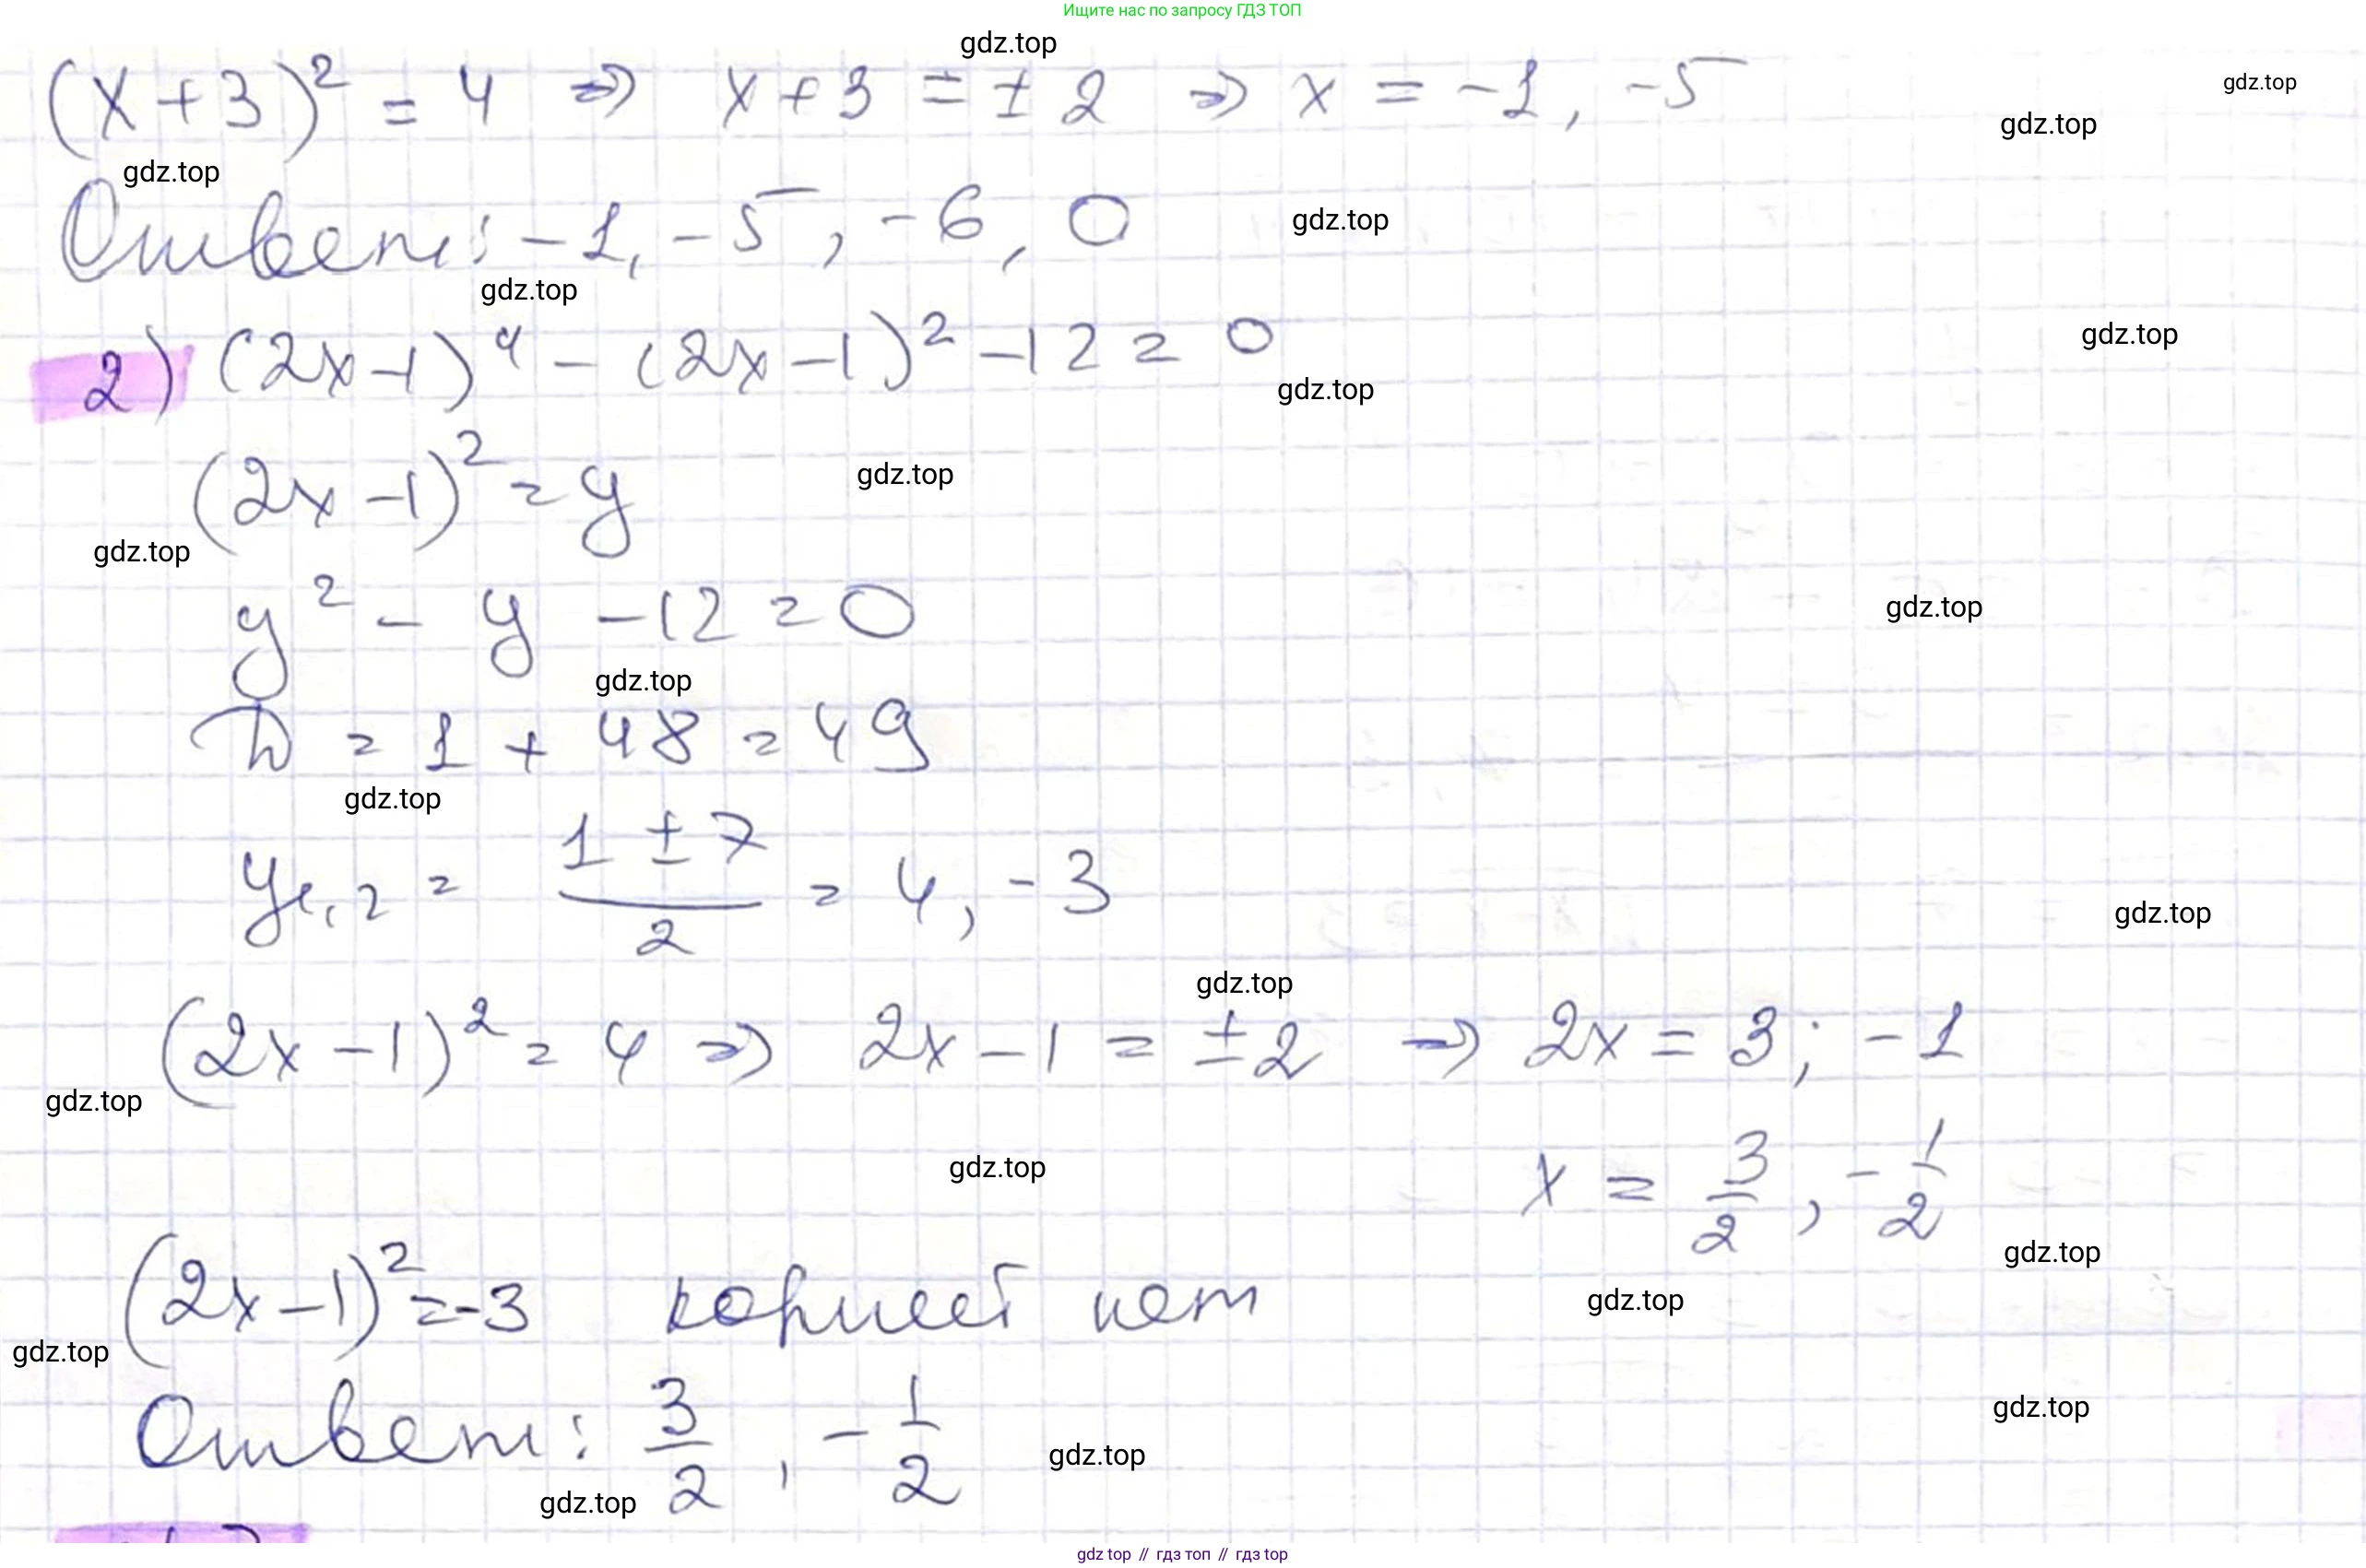 Ищите нас по запросу ГДЗ ТОП
gdz.top
(x+3)² = 4 ⇒ x+3 = ±2 ⇒ x = -1, -5
gdz.top
gdz.top
gdz.top
Ответ: -1, -5, -6, 0
gdz.top
gdz.top
2) (2x-1)⁴ - (2x-1)² - 12 = 0
gdz.top
gdz.top
(2x-1)² = y
gdz.top
gdz.top
y² - y - 12 = 0
gdz.top
gdz.top
D = 1 + 48 = 49
gdz.top
y₁,₂ = (1 ± 7)/2 = 4, -3
gdz.top
gdz.top
(2x-1)² = 4 ⇒ 2x-1 = ±2 ⇒ 2x = 3; -1
gdz.top
gdz.top
x = 3/2, -1/2
gdz.top
(2x-1)² = -3 корней нет
gdz.top
gdz.top
gdz.top
Ответ: 3/2, -1/2
gdz.top
gdz.top
gdz top // гдз топ // гдз top